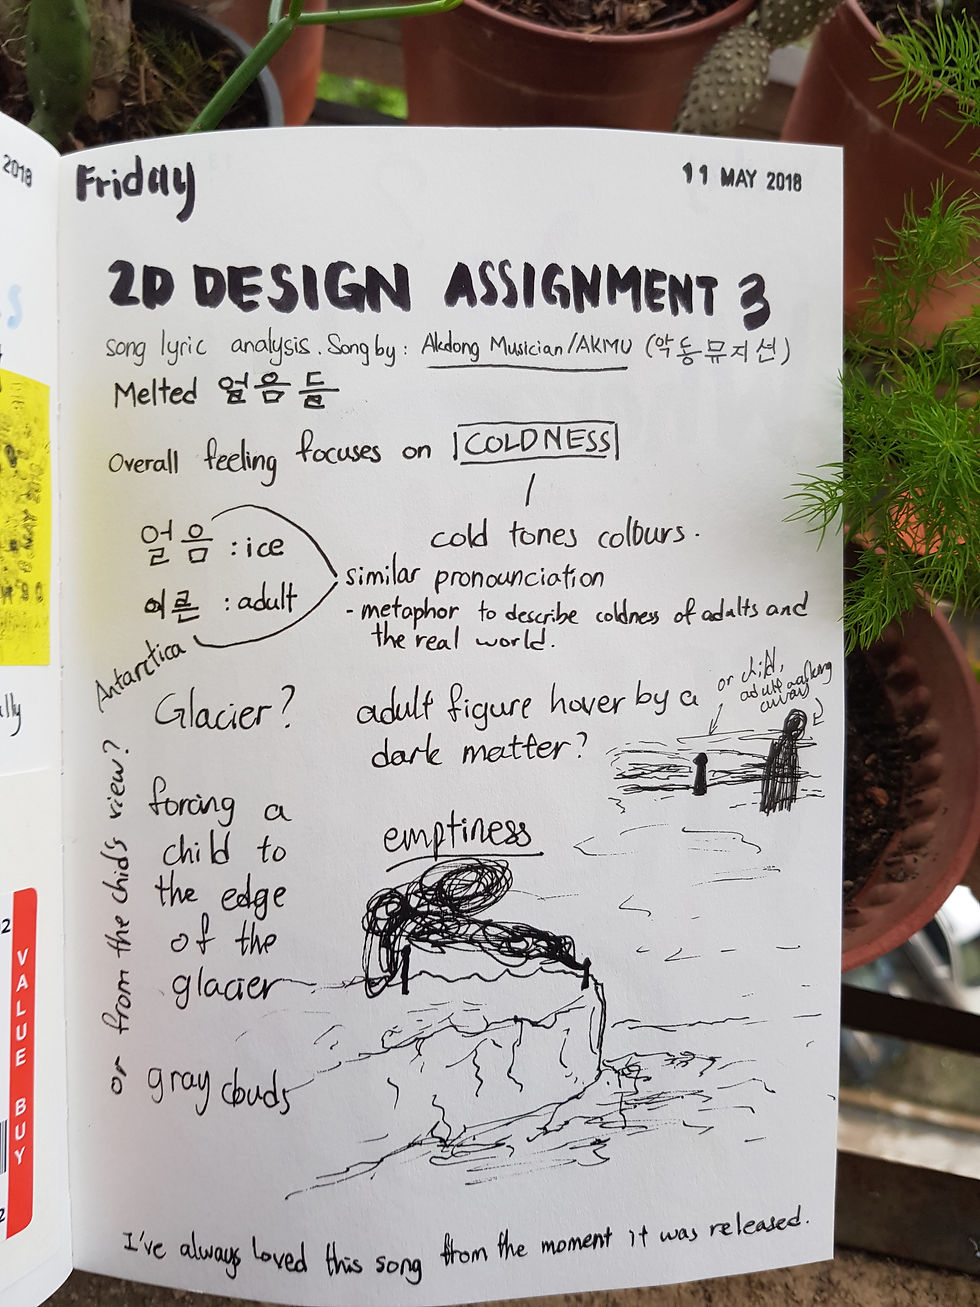 2018
Friday
11 MAY 2018
2D DESIGN ASSIGNMENT 3
song lyric analysis. Song by: Akdong Musician/AKMU (악동뮤지션)
Melted 얼음들
Overall feeling focuses on COLDNESS
cold tones colours.
얼음 : ice
어른 : adult
similar pronounciation
- metaphor to describe coldness of adults and
the real world.
Antarctica
Glacier?
adult figure hover by a
dark matter?
or child,
adult walking
away
forcing a
child to
the edge
of the
glacier
or from the chid's view?
emptiness
gray clouds
I've always loved this song from the moment it was released.
VALUE BUY